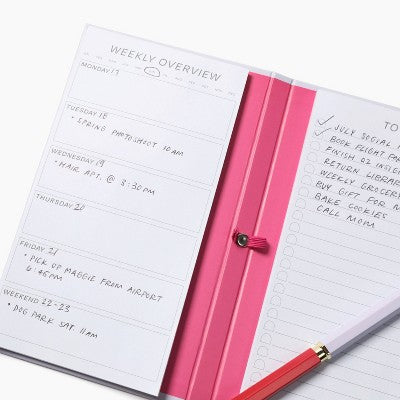 WEEKLY OVERVIEW
MONDAY 17
TUESDAY 18
• SPRING PHOTOSHOOT 10AM
WEDNESDAY 19
• HAIR APT. @ 8:30 PM
THURSDAY 20
FRIDAY 21
• PICK UP MAGGIE FROM AIRPORT
6:45PM
WEEKEND 22-23
• DOG PARK SAT. 11AM
TO
JULY SOCIAL
BOOK FLIGHT
FINISH
RETURN
WEEKLY
BUY GIFT FOR
BAKE COOKIES
CALL MOM